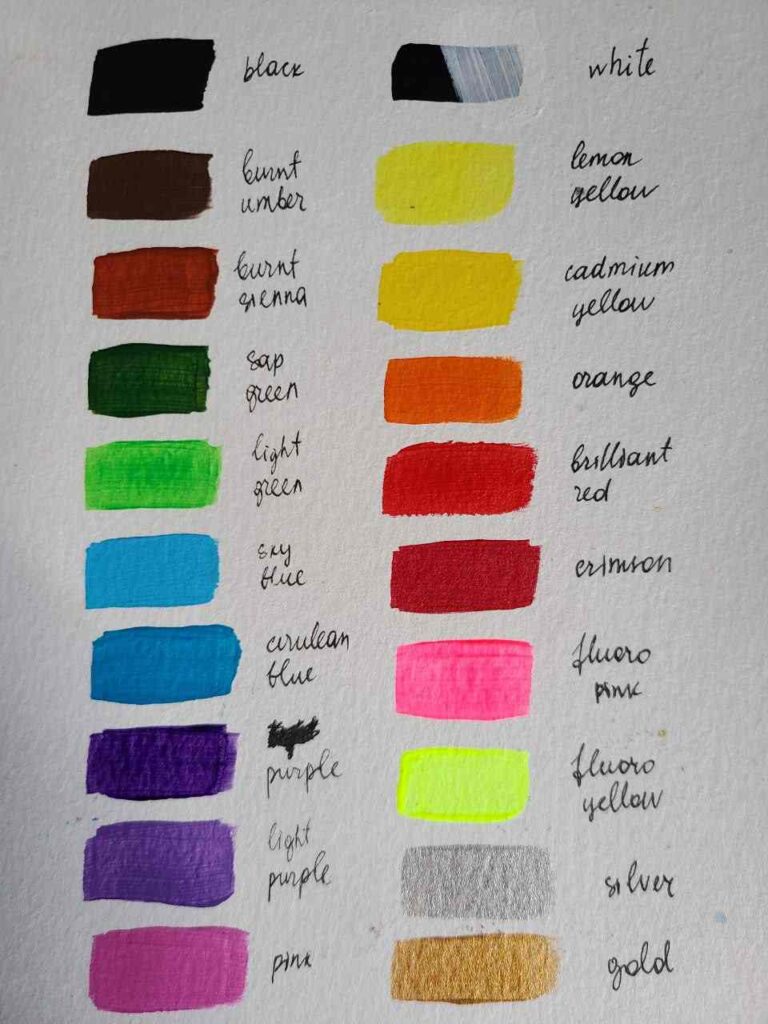 black
burnt
umber
burnt
sienna
sap
green
light
green
sky
blue
cirulean
blue
purple
light
purple
pink
white
lemon
yellow
cadmium
yellow
orange
brilliant
red
crimson
fluoro
pink
fluoro
yellow
silver
gold